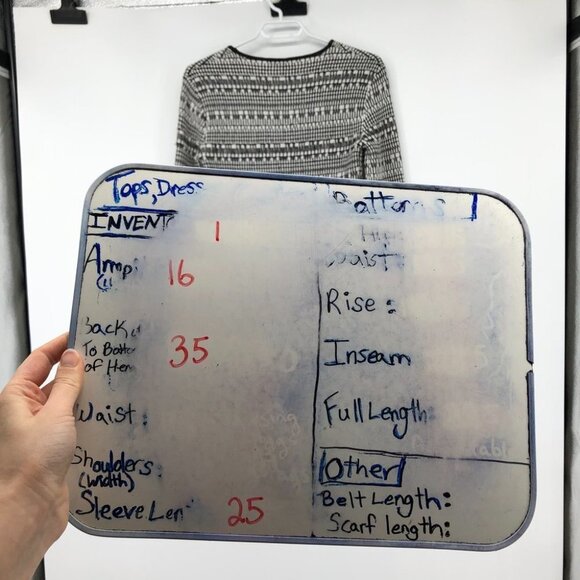 Tops, Dress
INVENT 1
Armpi 16
Back 35
To Botto
of Hem
Waist:
Shoulders:
(width)
Sleeve Len 25
Bottoms
Hip
Waist:
Rise:
Inseam
Full Length
Other
Belt Length:
Scarf length: